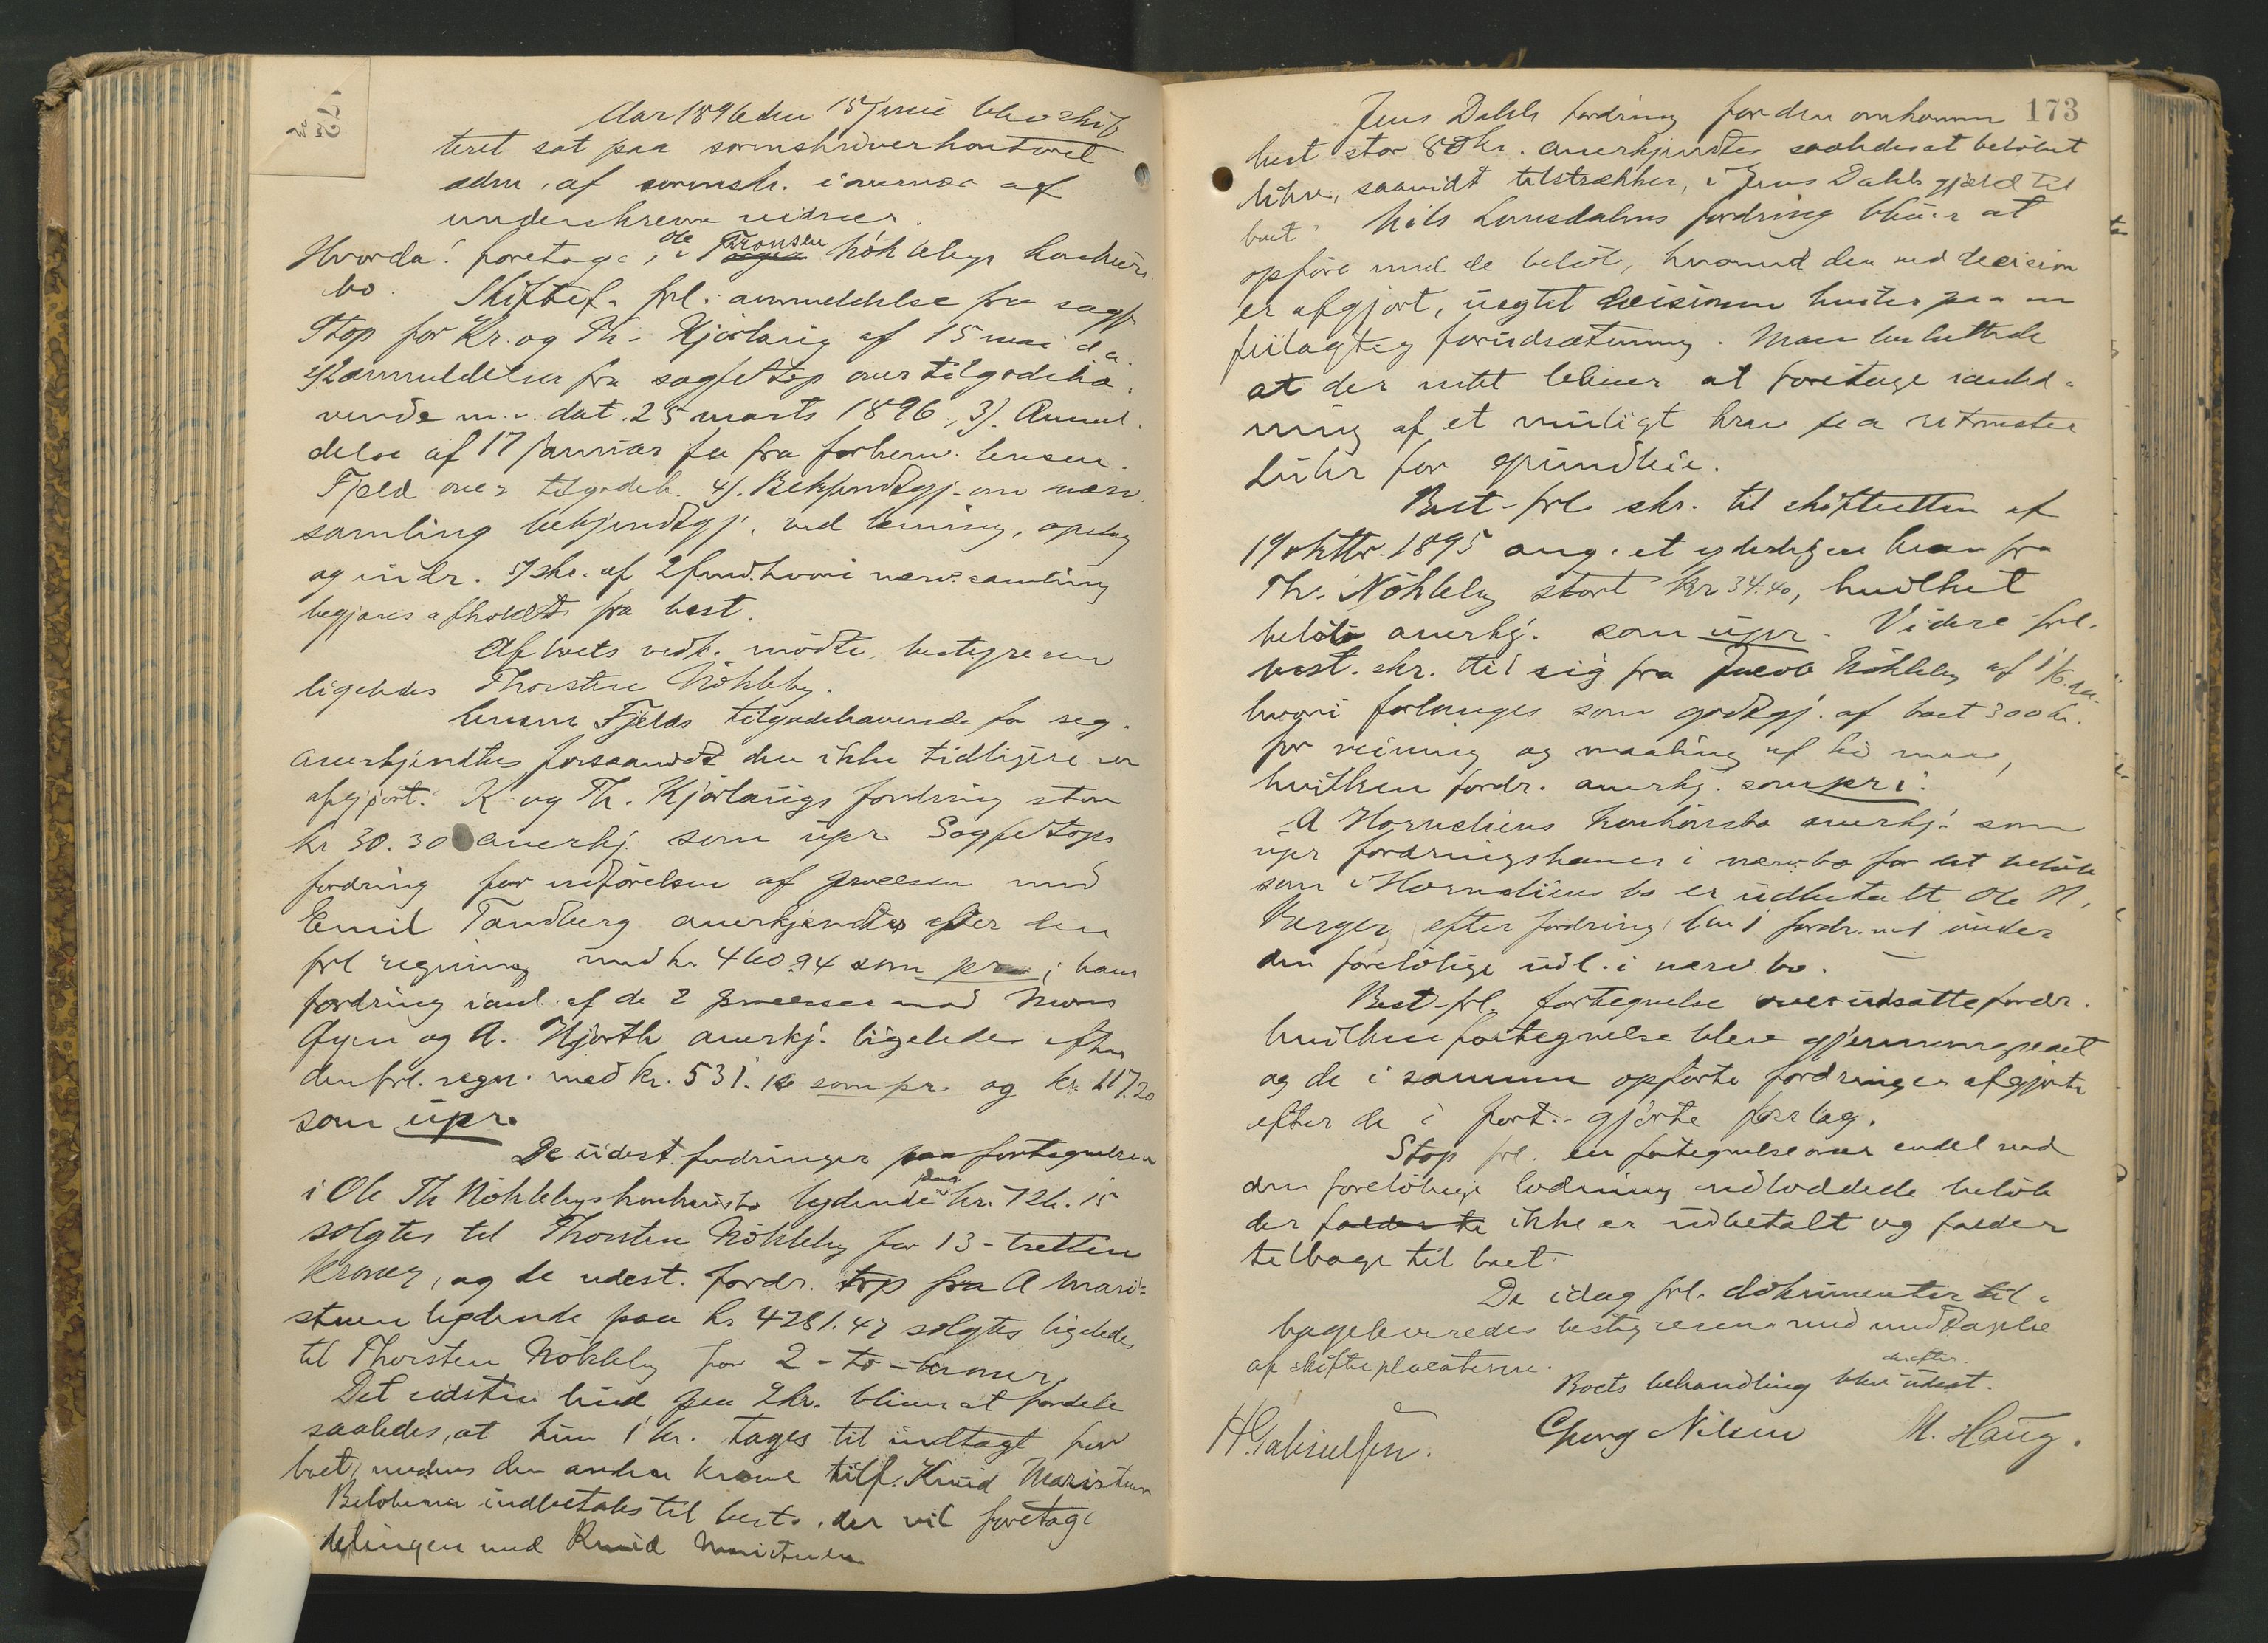 Aar 1896 den 15 juni blev skif
teret sat paa sorenskriverkontoret
adm. af sorenskr. i overvær af
underskrevne vidner.
Hvorda: foretoges i Ole Tronsen Nøkleby konkurs
bo. Skiftef. frl. anmeldelse fra sagf
Stop for Kr. og Th. Kjørlaug af 15 mai d a.
2) anmeldelser fra sagf Stop over tilgodeha
vende m. v. dat. 25 marts 1896, 3). Anmel
delse af 17 januar fra forhenv. lensm.
Fjeld over tilgodeh. 4). Bekjendtgj. om nærv.
samling bekjendtgj. ved læsning, opslag
og indr. 5) skr. af 2 hvori nærv. samling
begjæres afholdt fra best.
Af boets vedk. mødte bestyreren
ligeledes Thorsten Nøkleby.
Lensm. Fjelds tilgodehavende
anerkjendtes forsaavidt den ikke tidligere er
afgjort. K. og Th. Kjørlaugs fordring stor
kr 30.30 anerkj. som upr. Sagf Stops
fordring for udførelsen af processen mod
Emil Tandberg anerkjendtes efter den
frl regning med kr. 460.94 som pr; hans
fordring i anl. af de 2 processer mod
Øyen og A. Hjorth anerkj. ligeledes efter
den frl. regn. med kr. 531.16 som pr. og kr 117.20
som upr.
De udest. fordringer paa fortegnelsen
i Ole Th Nøklebys konkursbo lydende paa kr. 726.15
solgtes til Thorsten Nøkleby for 13 - tretten
kroner, og de udest. fordr. fra A Mari-
stuen lydende paa kr 4281.47 solgtes ligeledes
til Thorsten Nøkleby for 2 - to - kroner.
Det sidste bud paa 2 kr. bliver at fordele
saaledes, at kun 1 kr. tages til indtægt for
boet, medens den anden krone tilf. Knud Maristuen
Beløbene indbetales til best. der vil foretage
delingen med Knud Maristuen
173
Jens Dahls fordring for den omkomne
hest stor 80 kr. anerkjendtes saaledes at beløbet
saavidt tilstrækker, i Jens Dahls gjæld til
boet. Nils Lunsdalens fordring bliver at
opføre med de beløb, hvormed den ved decision
er afgjort, uagtet decisionen hviler paa en
feilagtig forudsætning. Man besluttede
at der intet bliver at foretage i anled-
ning af et muligt krav fra
Lühr for
Best. frl. skr. til skifteretten af
19 oktbr. 1895 ang. et yderligere krav fra
Th. Nøkleby stort kr 34.40, hvilket
beløb anerkj. som upr. Videre frl.
best. skr. til sig fra Jacob Nøkleby af 1/6 d.a.
hvori forlanges som godtgj. af boet 300 kr.
for og maaling af
hvilken fordr. anerkj. som pr.
A Hornelius konkursbo anerkj. som
upr fordringshaver i nærv. bo for det beløb
som i Hornelius bo er udbetalt Ole N.
Berger efter fordring under
den foreløbige udl. i nærv. bo.
Best. frl. fortegnelse over udsatte fordr.
hvilken fortegnelse blev gjennemgaaet
og de i samme opførte fordringer afgjorte
efter de i fort. gjorte forslag.
Stop frl. en fortegnelse over endel ved
den foreløbige lodning udloddede beløb
der falder ti ikke er udbetalt og falder
tilbage til boet.
De idag frl. dokumenter til-
bageleveredes bestyreren med undtagelse
af skifteplacaterne.
Boets behandling blev derefter udsat.
H. Gabrielsen. Georg Nilsen M. Haug.